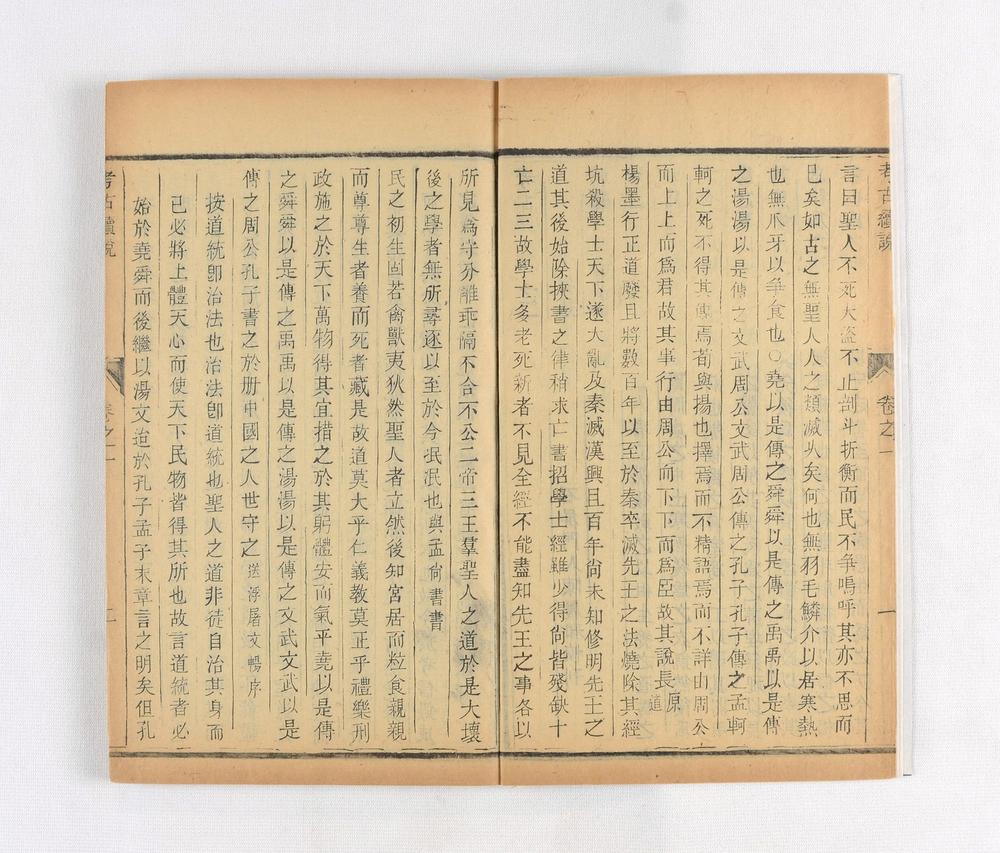 考古續說
卷之一
言曰聖人不死大盜不止剖斗折衡而民不爭嗚呼其亦不思而
已矣如古之無聖人人之類滅乆矣何也無羽毛鱗介以居寒熱
也無爪牙以爭食也○堯以是傳之舜舜以是傳之禹禹以是傳
之湯湯以是傳之文武周公文武周公傳之孔子孔子傳之孟軻
軻之死不得其傳焉荀與揚也擇焉而不精語焉而不詳由周公
而上上而爲君故其事行由周公而下下而爲臣故其說長原道
楊墨行正道廢且將數百年以至於秦卒滅先王之法燒除其經
坑殺學士天下遂大亂及秦滅漢興且百年尙未知修明先王之
道其後始除挾書之律稍求亡書招學士經雖少得尙皆殘缺十
亡二三故學士多老死新者不見全經不能盡知先王之事各以
所見爲守分離乖隔不合不公二帝三王羣聖人之道於是大壞
後之學者無所尋逐以至於今泯泯也與孟尙書書
民之初生固若禽獸夷狄然聖人者立然後知宮居而粒食親親
而尊尊生者養而死者藏是故道莫大乎仁義教莫正乎禮樂刑
政施之於天下萬物得其宜措之於其躬體安而氣平堯以是傳
之舜舜以是傳之禹禹以是傳之湯湯以是傳之文武文武以是
傳之周公孔子書之於册中國之人世守之送浮屠文暢序
按道統卽治法也治法卽道統也聖人之道非徒自治其身而
己必將上體天心而使天下民物皆得其所也故言道統者必
始於堯舜而後繼以湯文迨於孔子孟子末章言之明矣但孔
考古續說
卷之一
二